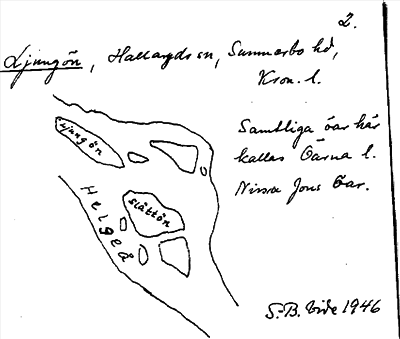 2.
Ljungön, Hallaryds sn, Sunnerbo hd,
Kron. l.
Ljungön
Samtliga öar här
kallas Öarna l.
Nissa Jons Öar.
Helgeå
slåttön
S. B. Vide 1946